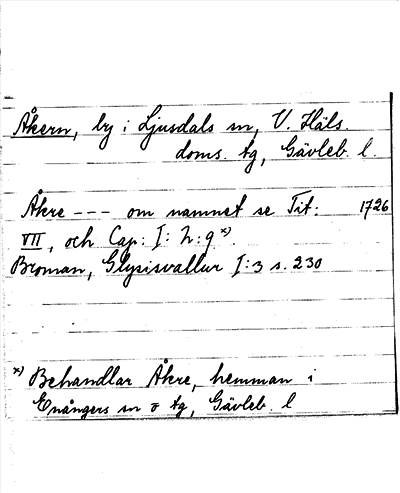 Åkern, by i Ljusdals sn, V. Häls.
doms. tg, Gävleb. l.
Åkre --- om namnet se Tit: 1726
VII, och Cap: I: h: 9 x).
Broman, Glysisvallur I:3 s. 230
x) Behandlar Åkre, hemman i
Enångers sn o tg, Gävleb. l